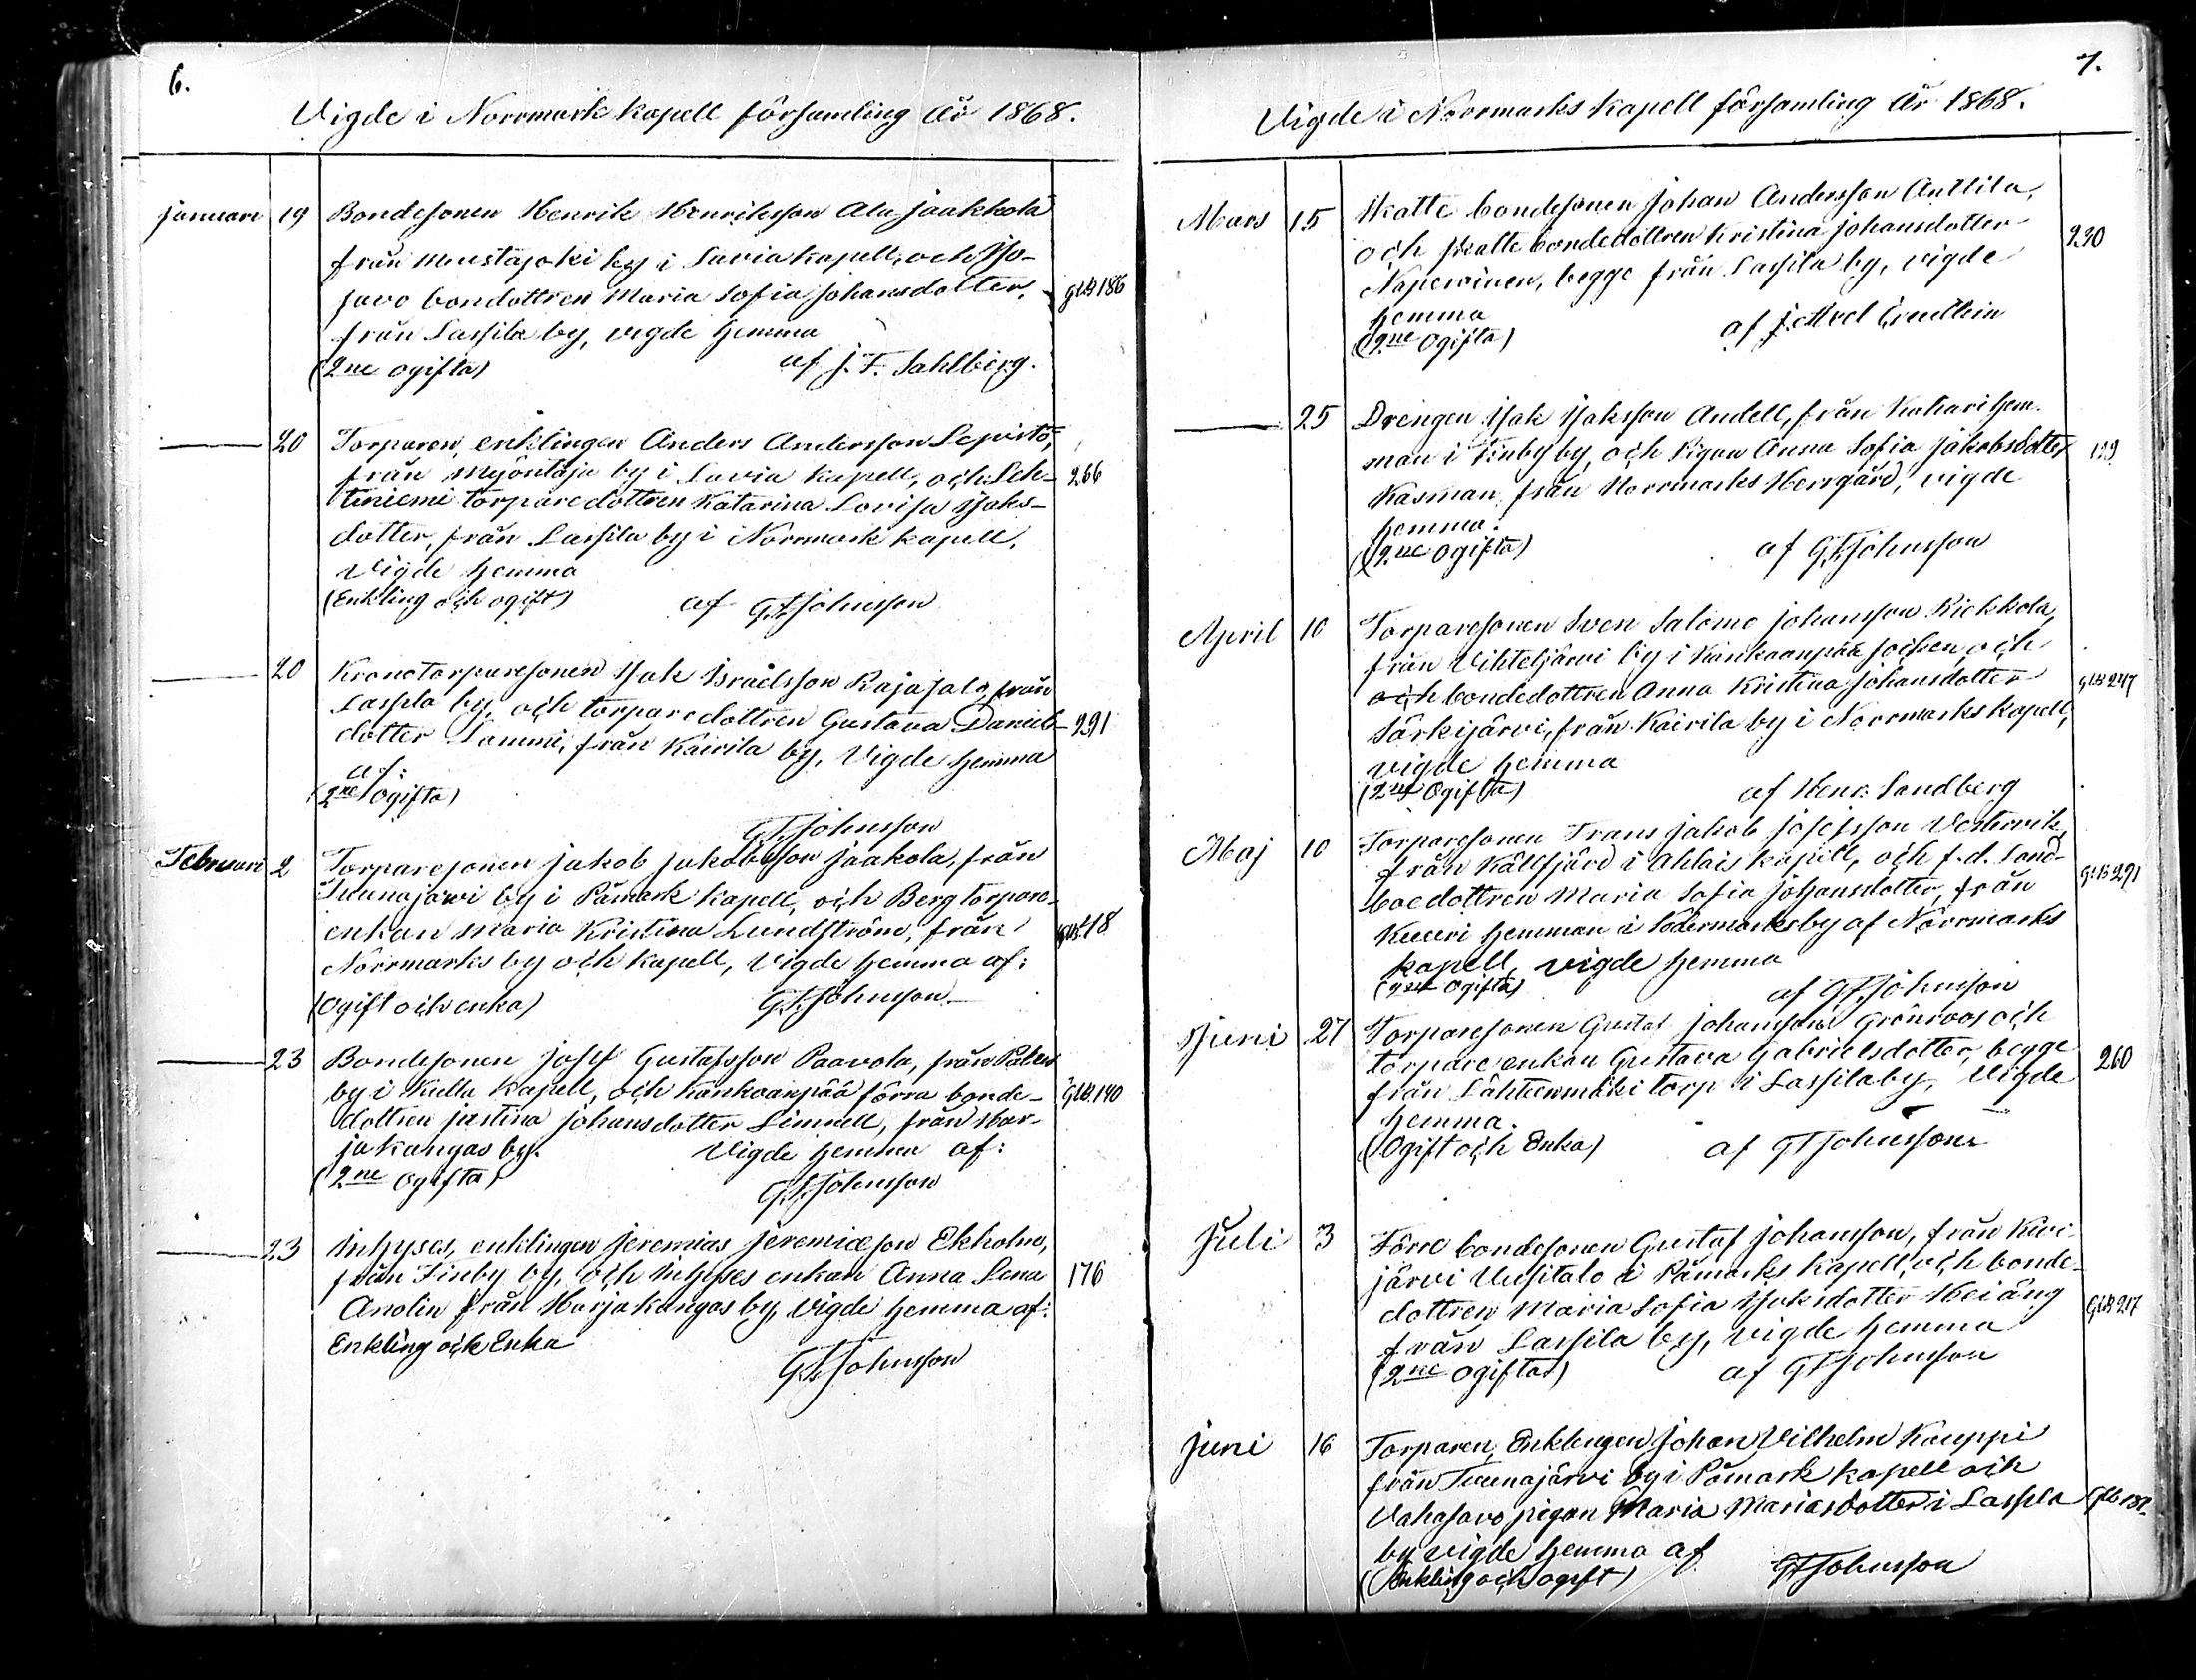 6.
Vigde i Norrmark kapell församling År 1868.
Januari 19 Bondesonen Henrik Henriksson Ala Jaakkola
från Mustajoki by i Lavia kapell, och Iso-
javo bondottren Maria Sofia Johansdotter, GLB 186
från Lassila by, vigde hemma
(2ne ogifta) af J. F. Sahlberg.
20 Torparen, enklingen Anders Andersson Lepistö,
från Myöntäjä by i Lavia kapell, och Leh- 266
tiniemi torparedottren Katarina Lovisa Isaks-
dotter, från Lassila by i Norrmark kapell,
Vigde hemma
(Enkling och ogift) af G. F. Johnsson
20 Kronotorparesonen Isak Israelsson Rajasalo, från
Lassila by, och torparedottren Gustava Daniels- 291
dotter Lammi, från Kairila by, Vigde hemma
af:
(2ne Ogifta)
G. F. Johnsson
Februari 2 Torparesonen Jakob Jakobsson Jaakola, från
Tuunajärvi by i Påmark kapell, och Bergtorpare-
enkan Maria Kristina Lundström, från GLB 18
Norrmarks by och kapell, Vigde hemma af:
(Ogift och enka) G. F. Johnsson
23 Bondesonen Josef Gustafsson Paavola, från Palus
by i Kulla kapell, och Kankaanpää förra bonde- GLB. 140
dottren Justina Johansdotter Limnell, från Har-
jakangas by. Vigde hemma af:
(2ne Ogifta)
G. F. Johnsson
23 Inhyses, enklingen Jeremias Jeremiæson Ekholm,
från Finby by, och Inhyses enkan Anna Lena 176
Anolin från Harjakangas by, Vigde hemma af:
Enkling och Enka
G. F. Johnsson
7.
Vigde i Norrmarks Kapell församling År 1868.
Mars 15 Skatte bondesonen Johan Andersson Anttila,
och skatte bondedottren Kristina Johansdotter 230
Näperinen, begge från Lassila by, vigde
hemma
(2ne Ogifta) af J. Axel
25 Drengen Isak Isaksson Andell, från Katari hem-
man i Finby by, och Pigan Anna Sofia Jakobsdotter
Kasman från Norrmarks Herrgård, vigde
hemma.
(2ne Ogifta) af G. F. Johnsson
April 10 Torparesonen Sven Salomo Johansson Riekkola,
från Vihteljärvi by i Kankaanpää socken, och
och bondedottren Anna Kristina Johansdotter GLB 247
Särkijärvi, från Kairila by i Norrmarks kapell,
vigde hemma
(2ne Ogifta) af Henr. Sandberg
Maj 10 Torparesonen Frans Jakob Josefsson Vestervik,
från Källfjärd i Ahlais kapell, och f.d. Land- GLB 291
boedottren Maria Sofia Johansdotter, från
Kuuri hemman i Södermarks by af Norrmarks
kapell, vigde hemma
(2ne Ogifta) af G. F. Johnsson
Juni 27 Torparesonen Gustaf Johansson Grönroos och
torpareenkan Gustava Gabrielsdotter, begge 260
från Lähteenmäki torp i Lassila by, Vigde
hemma.
(Ogift och Enka) af G F Johnsson
Juli 3 Förre bondesonen Gustaf Johansson, från Kivi-
järvi Uusitalo i Påmarks kapell, och bonde-
dottren Maria Sofia Isaksdotter Heiäng GLB 217
från Lassila by, vigde hemma
(2ne Ogiftas) af G F Johnsson
Juni 16 Torparen, Enklingen Johan Vilhelm Kauppi
från Tuunajärvi by i Påmark kapell och
Vahasavo pigan Maria Mariasdotter i Lassila
by vigde hemma af
(Enkling och ogift) G F Johnsson